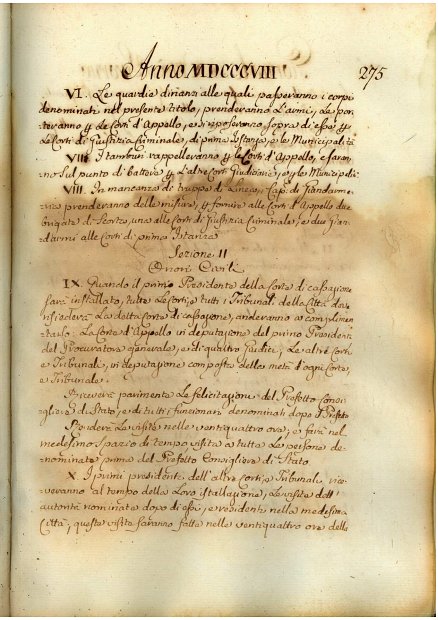 Anno MDCCCVIII
275
VI. Le guardie dinanzi alle quali passeranno i corpi
denominati nel presente titolo, prenderanno l'armi, le por
teranno p le Corti d'Appello, e si riposeranno sopra di esse p
le Corti di Giustizia Criminale, di prima Istanza, e le Municipalità
VII. I tamburi rappelleranno p le Corti d'Appello, e saran
no sul punto di battere p l'altre Corti Giudiziarie, e p le Municipali
VIII. In mancanza di truppe di Linea, i Cap. di Giandarme
ria prenderanno delle misure, p fornire alle Corti d'Appello due
brigate di Scorta, una alle Corti di Giustizia Criminale, e due Gian
darmi alle Corti di prima Istanza
Sezione II
Onori Civili
IX. Quando il primo Presidente della Corte di cassazione
sarà installato, tutte le Corti, e tutti i Tribunali della Città do
risiederà la detta Corte di cassazione, anderanno a complimen
tarlo: la Corte d'Appello in deputazione del primo Presidente
del Procuratore Generale, e di quattro Giudici; le altre Corti
e Tribunali, in deputazione composta della metà d'ogni Corte,
e Tribunale.
Riceverà parimente le felicitazioni del Prefetto consi
gliere di Stato, e di tutti i funzionari denominati dopo il Prefetto
Renderà le visite nelle ventiquattro ore; e farà nel
medesimo spazio di tempo visita a tutte le persone de
nominate prima del Prefetto Consigliere di Stato
X. I primi presidenti dell'altre Corti, e Tribunali, rice
veranno al tempo della loro istallazione, le visite dell'
autorità nominate dopo di essi, e residenti nella medesima
Città; queste visite saranno fatte nelle ventiquattro ore della